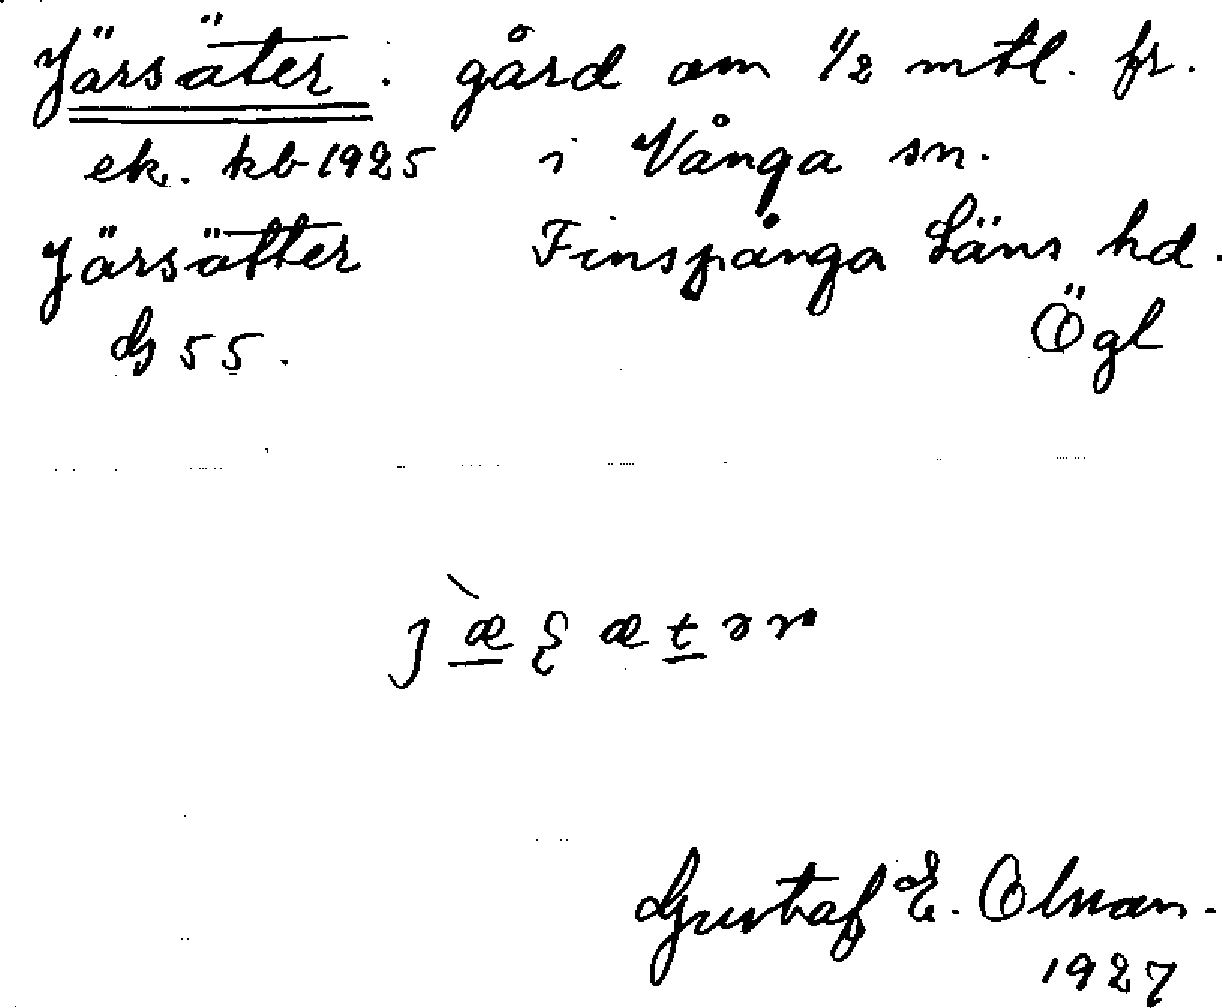 Järsäter. gård om 1/2 mtl. fr.
ek. kb 1925 i Vånga sn.
Järsätter Finspånga Läns hd.
GS 55. Ögl
j æ̀ ʂ æ t ə r
Gustaf E. Olsson.
1927